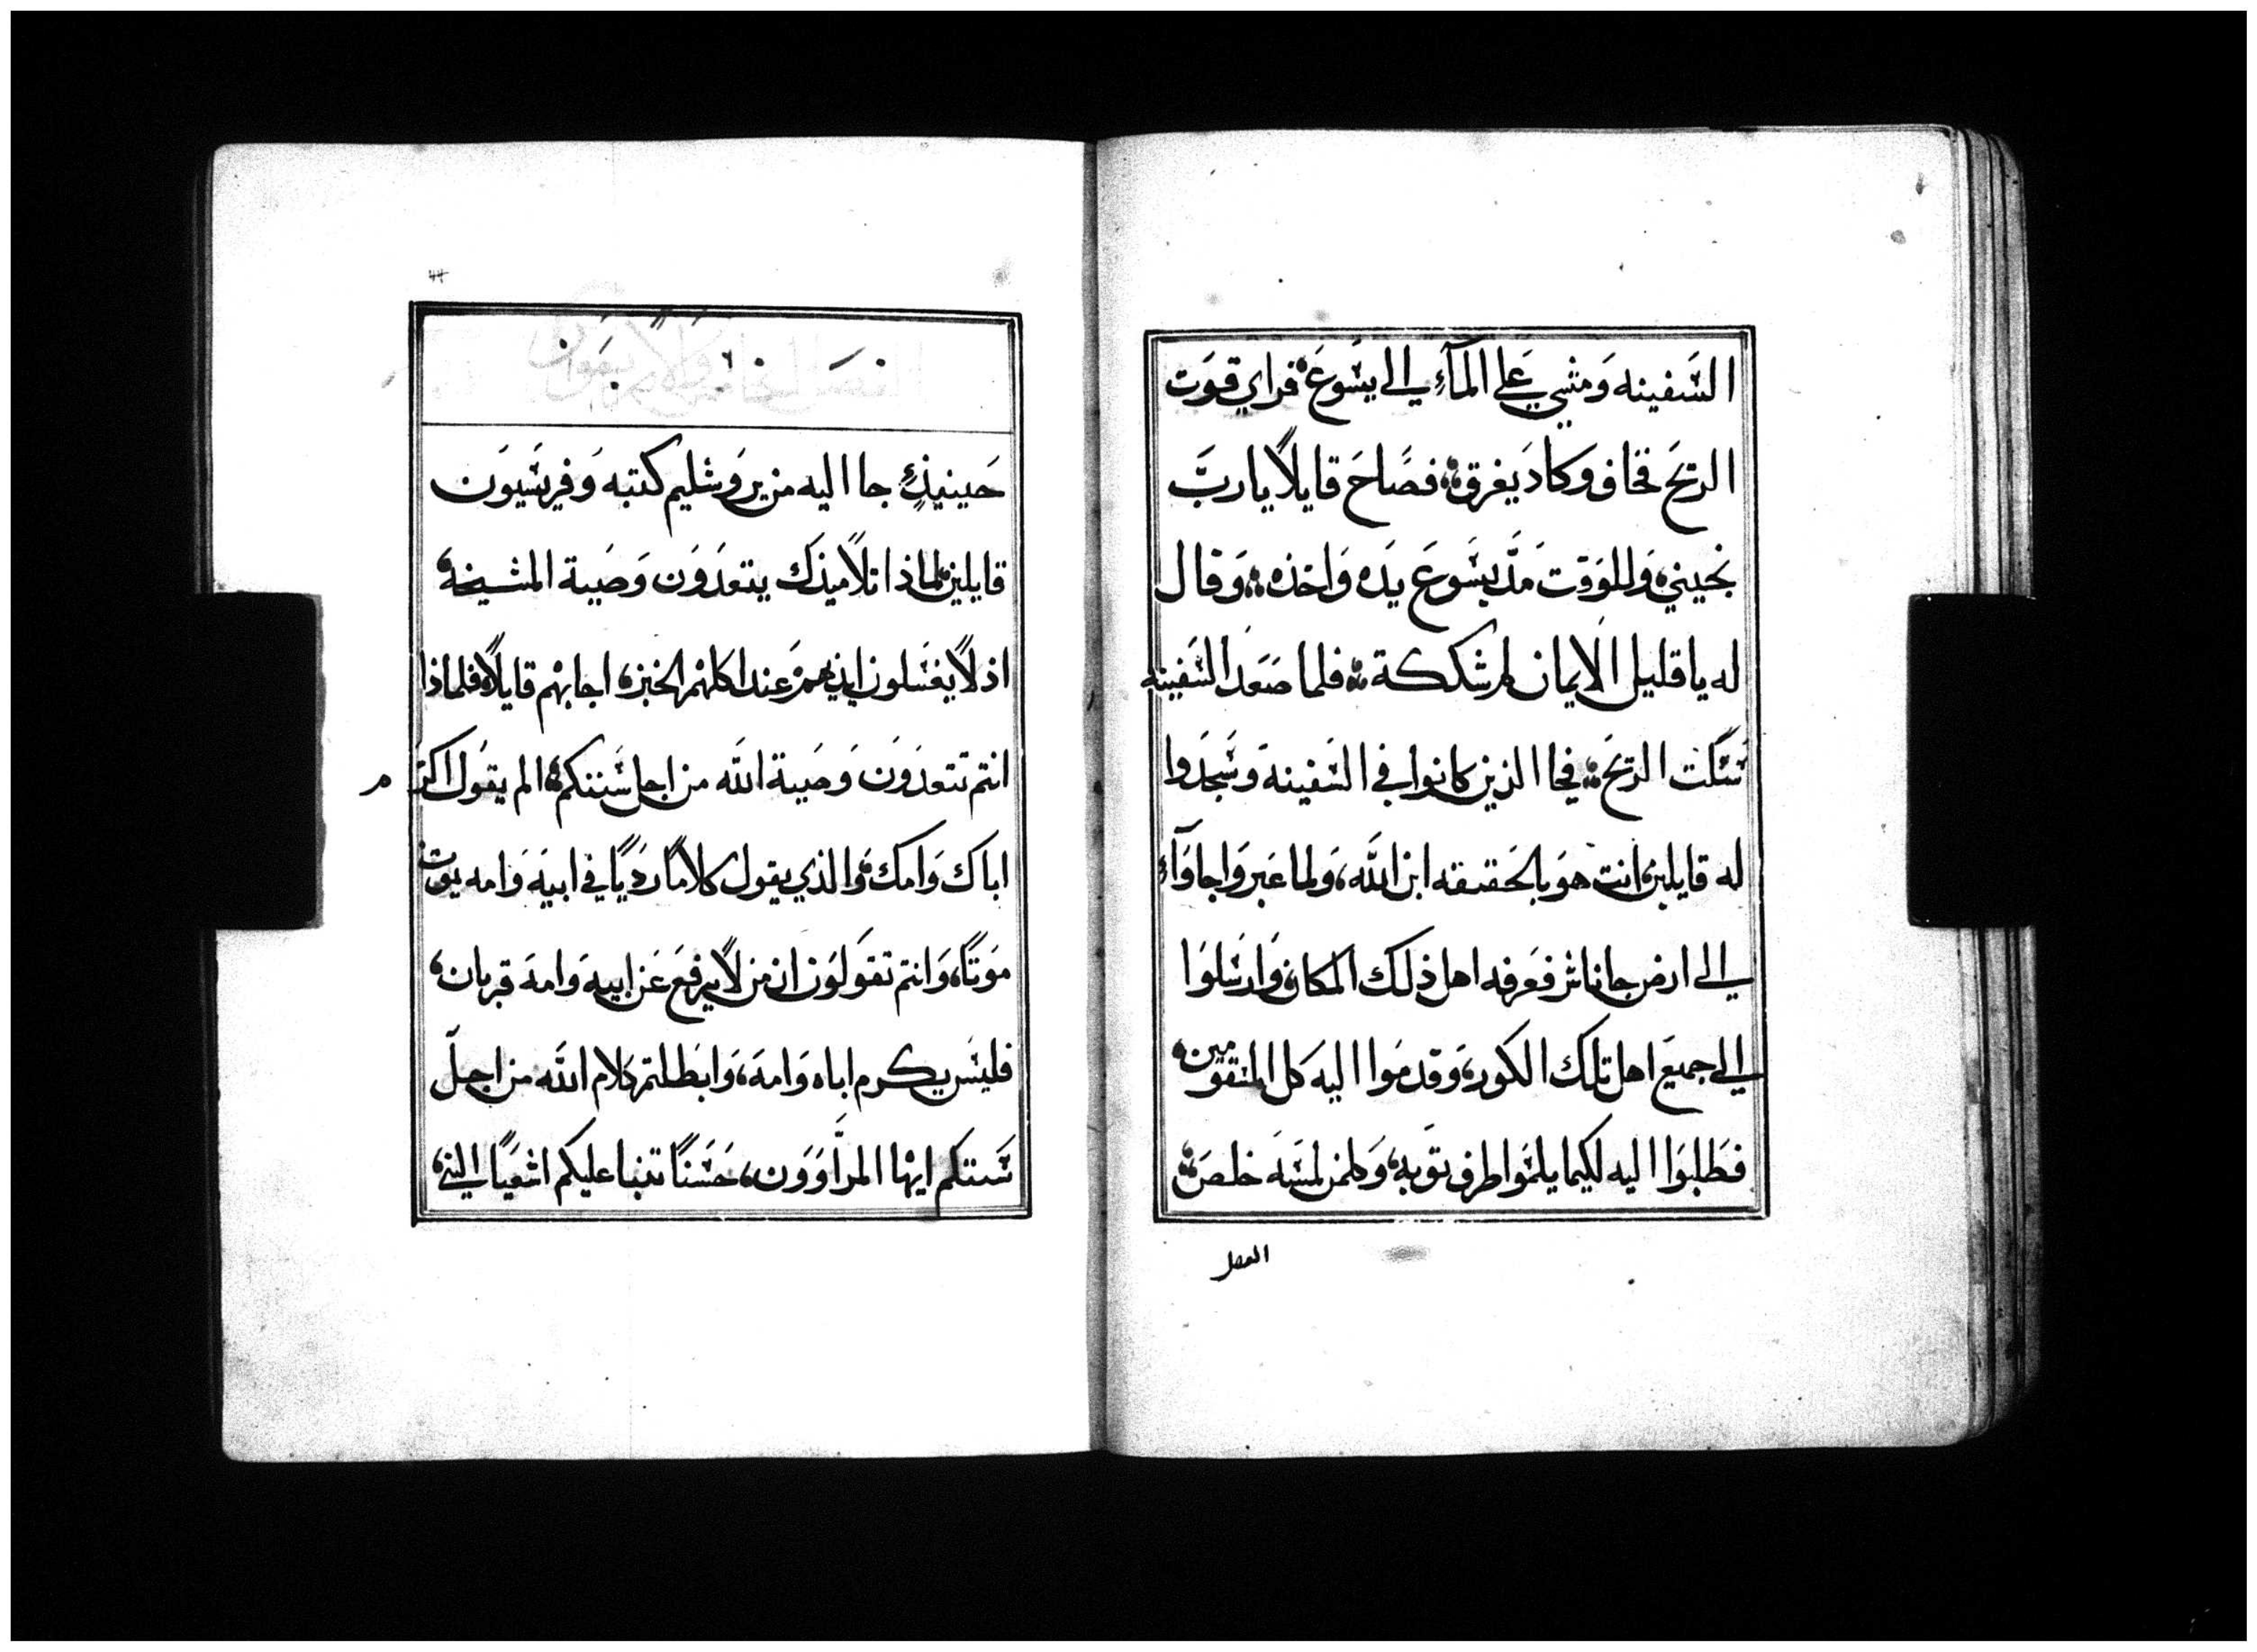 السَفينه وَمشي عَلي المآءِ الي يسَوعَ فراي قوَت
الريَح فخاف وكادَ يغرق فصَاحَ قايلاً يا ربَّ
نجيني وَللوَقت مَدَّ يسَوعَ يدَه وَاخذه وَقال
له يا قليل الايمان لم شككة فلما صَعَدَ السَفينه
سَكَنت الريَح فجا الذين كانوا في السَفينة وَسَجَدَوا
له قايلين انت هوَ بالحَقيقه ابن اللَه وَلما عَبروَا جاوَآء
الي ارض جاناشر فعَرفه اهل ذلك المكان وَارسَلوَا
الي جميعَ اهل تلك الكور وَقدمَوا اليهَ كل المتقومين
فطَلبوَا اليه لكيما يلمَوا طرف توَبه وَكلمن لمسَهَ خلصَ
الفصل
٤٤
الفصَل الخامس وَالاربعَوَن
حَينيذٍ جا اليه من يروَشليم كتبه وَفريسَيوَن
قايلين لماذا تلاميذك يتعدَوَن وَصَية المشيخه
اذ لاً يغسَلون ايديهمَ عَند اكلهم الخبز اجابهم قايلاً فلماذا
انتم تتعدَوَن وَصَية اللَه من اجل سَنتكم الم يقوَل اكرم
اباك وَامك وَالذي يقول كلامًا رَديًا في ابيَه وَامه يموت
موَتًا وَانتم تقوَلوَن ان من لاً يرفعَ عَن ابيهَ وَامهَ قربان
فليسَ يكرم اباه وَامهَ وَابطَلتم كلام اللَه من اجلّ
سَنتكم ايها المرآوَوَن حَسَنًا تنبا عليكم اشعَيَا النبي